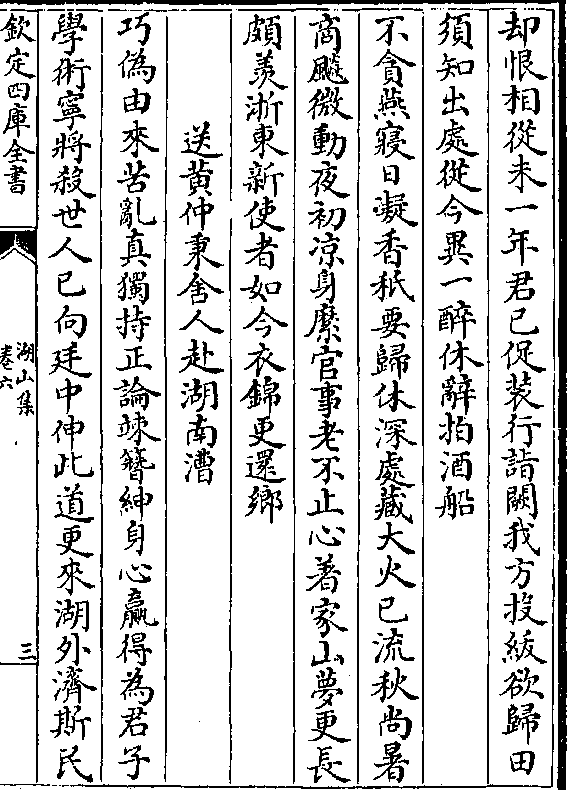 却恨相從未一年君已促装行詣闕我方投紱欲歸田
須知出處從今異一醉休辭拍酒船
不貪燕寢日凝香秪要歸休深處藏大火已流秋尚暑
商飈微動夜初凉身縻官事老不止心著家山夢更長
頗羡浙東新使者如今衣錦更還鄉
送黄仲秉舍人赴湖南漕
巧偽由來苦亂真獨持正論竦簪紳身心贏得為君子
學術寧將殺世人已向廷中伸此道更來湖外濟斯民
欽定四庫全書
湖山集
卷六
三